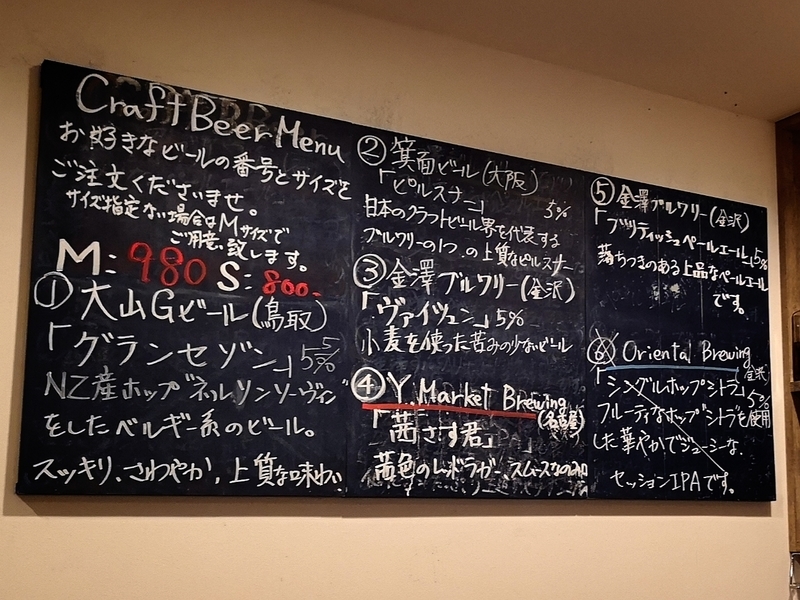 Craft Beer Menu
お好きなビールの番号とサイズを
ご注文くださいませ。
サイズ指定ない場合はMサイズで
ご用意致します。
M:980 S:800.
① 大山Gビール(鳥取)
「グランセゾン」5%
NZ産ホップ"ネルソンソーヴィン"
をしたベルギー系のビール。
スッキリ、さわやか、上質な味わい
② 箕面ビール(大阪)
「ピルスナー」 5%
日本のクラフトビール界を代表する
ブルワリーの1つ。の上質なピルスナー
③ 金澤ブルワリー(金沢)
「ヴァイツェン」5%
小麦を使った苦みの少ないビール
④ Y.Market Brewing
(名古屋)
「茜さす君」
茜色のレッドラガー、スムースなのみ口
⑤ 金澤ブルワリー(金沢)
「ブリティッシュペールエール」5%
落ちつきのある上品なペールエール
です。
⑥ Oriental Brewing
金沢
「シングルホップシトラ」5%
フルーティなホップ"シトラ"を使用
した華やかでジューシーな、
セッションIPAです。